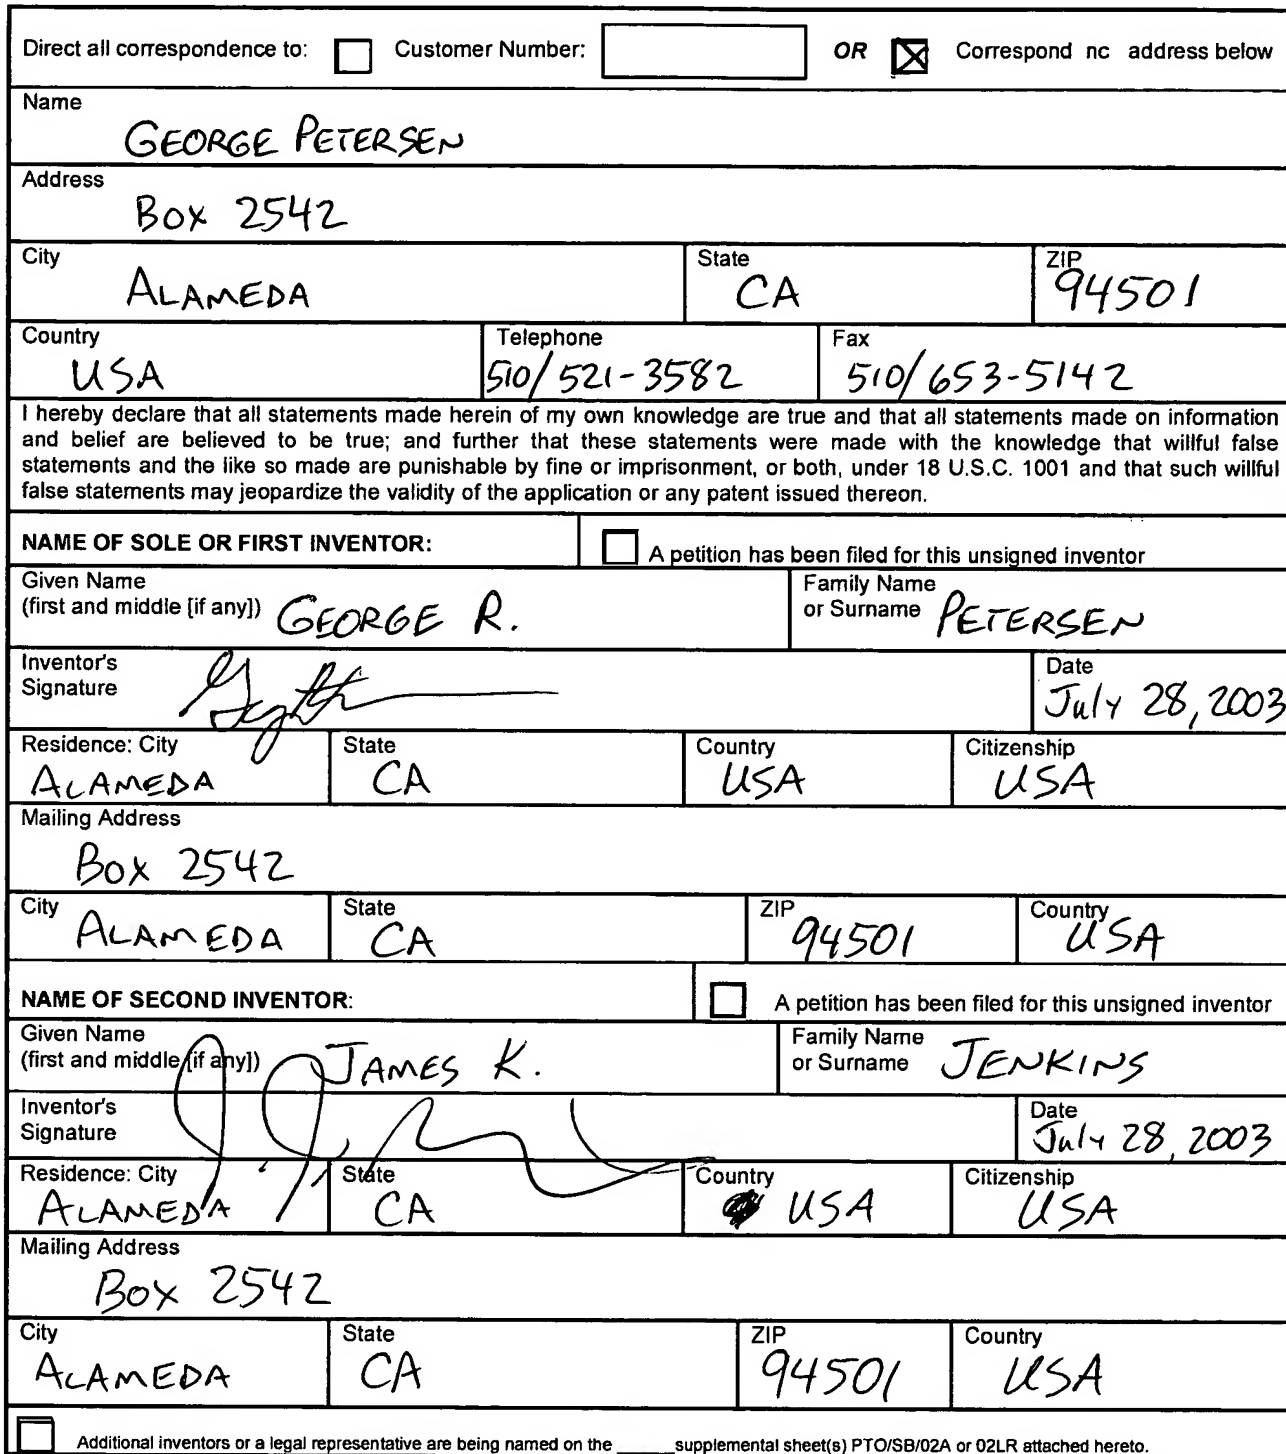 Direct all correspondence to: Customer Number: OR Correspond nc address below
Name
GEORGE PETERSEN
Address
Box 2542
City State ZIP
ALAMEDA CA 94501
Country Telephone Fax
USA 510/521-3582 510/653-5142
I hereby declare that all statements made herein of my own knowledge are true and that all statements made on information
and belief are believed to be true; and further that these statements were made with the knowledge that willful false
statements and the like so made are punishable by fine or imprisonment, or both, under 18 U.S.C. 1001 and that such willful
false statements may jeopardize the validity of the application or any patent issued thereon.
NAME OF SOLE OR FIRST INVENTOR: A petition has been filed for this unsigned inventor
Given Name Family Name
(first and middle [if any]) GEORGE R. or Surname PETERSEN
Inventor's Date
Signature July 28, 2003
Residence: City State Country Citizenship
ALAMEDA CA USA USA
Mailing Address
Box 2542
City State ZIP Country
ALAMEDA CA 94501 USA
NAME OF SECOND INVENTOR: A petition has been filed for this unsigned inventor
Given Name Family Name
(first and middle [if any]) JAMES K. or Surname JENKINS
Inventor's Date
Signature July 28, 2003
Residence: City State Country Citizenship
ALAMEDA CA USA USA
Mailing Address
Box 2542
City State ZIP Country
ALAMEDA CA 94501 USA
Additional inventors or a legal representative are being named on the ______supplemental sheet(s) PTO/SB/02A or 02LR attached hereto.